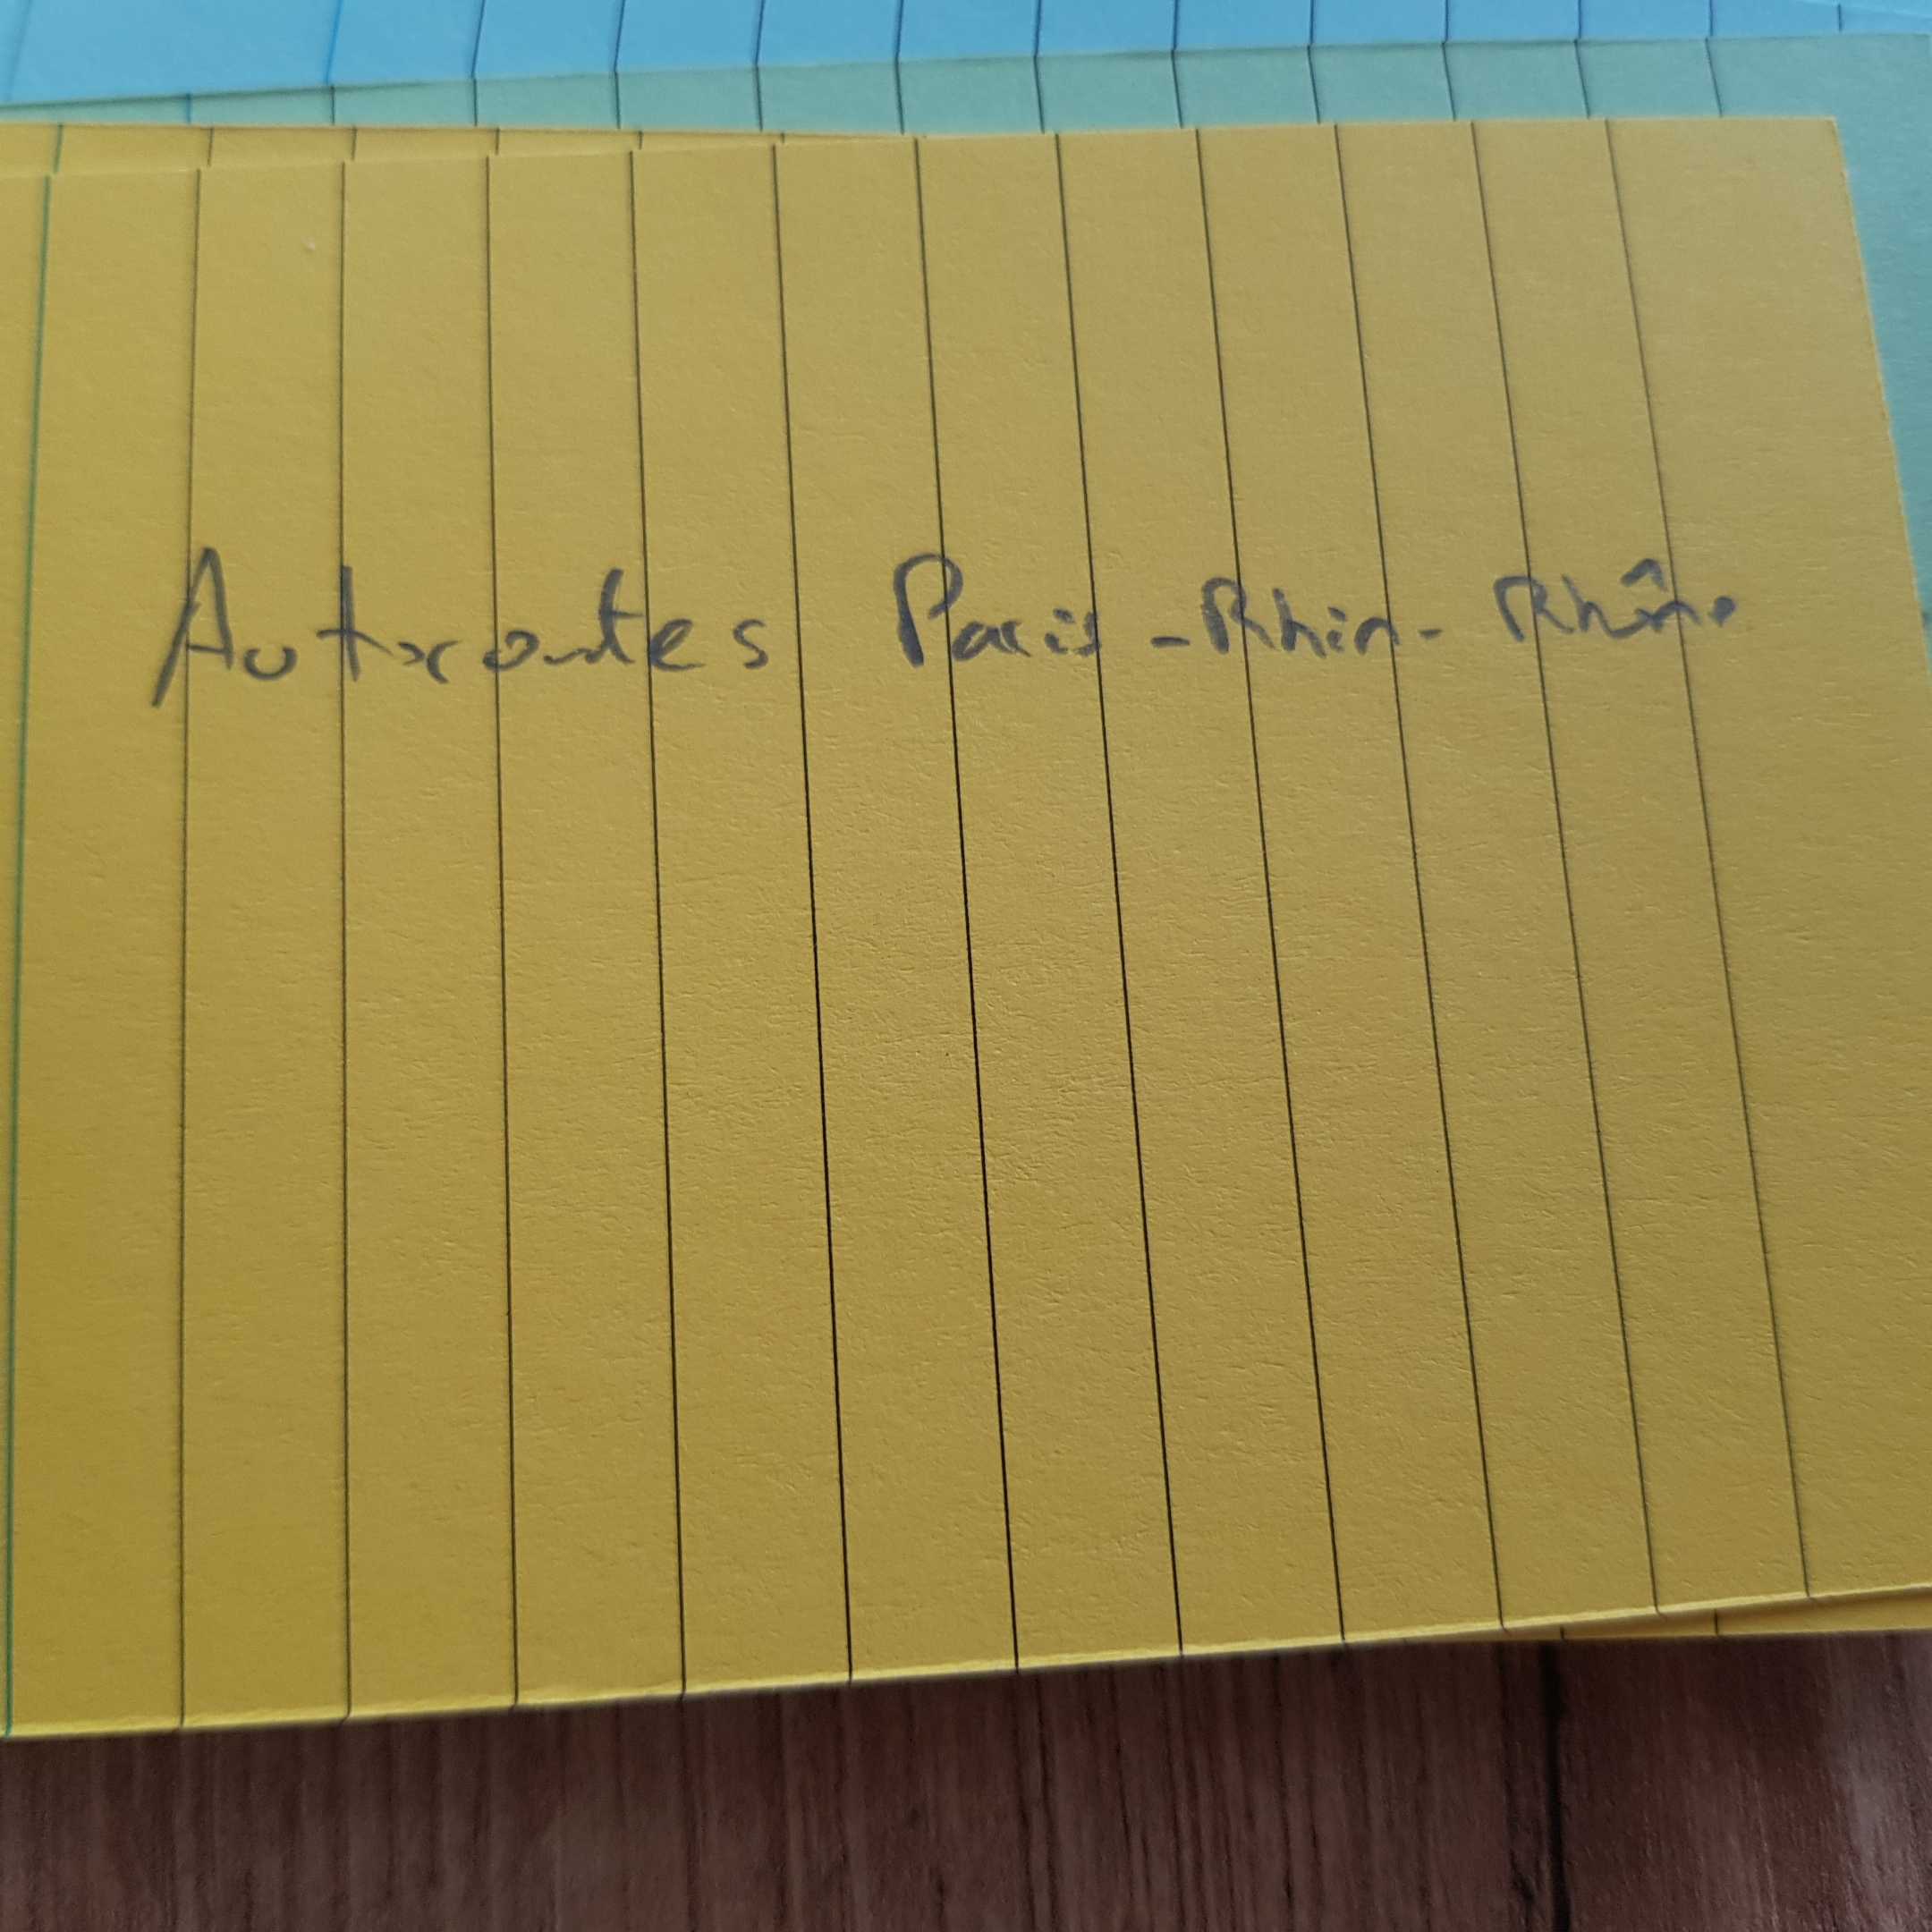 Autoroutes Paris-Rhin-Rhône